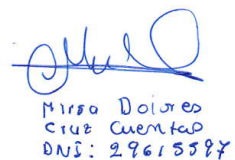 Mirsa Dolores
Cruz Cuentas
DNI: 29615597